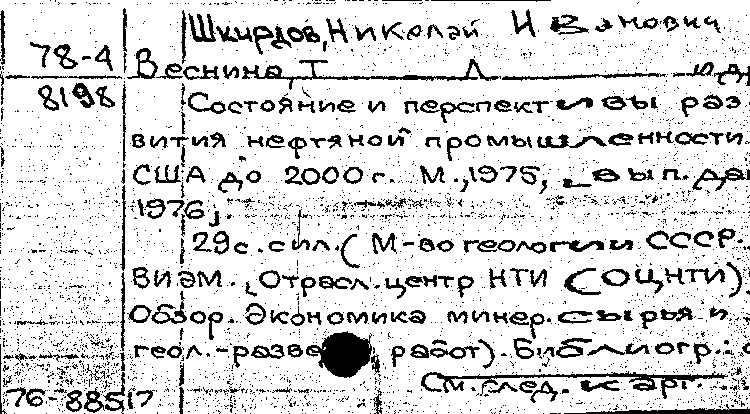 Шкирдов, Николай Иванович
78-4 Веснина, Т Л и др
8198 Состояние и перспективы раз
вития нефтяной промышленности
США до 2000г. М., 1975, вып. дан
1976,.
29с. с ил. (М-во геологии СССР.
ВИЭМ., Отрасл. центр НТИ (ОЦНТИ)
Обзор. Экономика минер. сырья и
геол.-разве работ). Библиогр.: с
См. след. карт...
76-88517